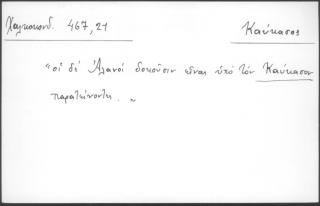 Χαλκοκονδ. 467, 21
Καύκασος
"οἱ δὲ Ἀλανοὶ δοκοῦσιν εἶναι ὑπὸ τὸν Καύκασον
παρατείνοντι. "